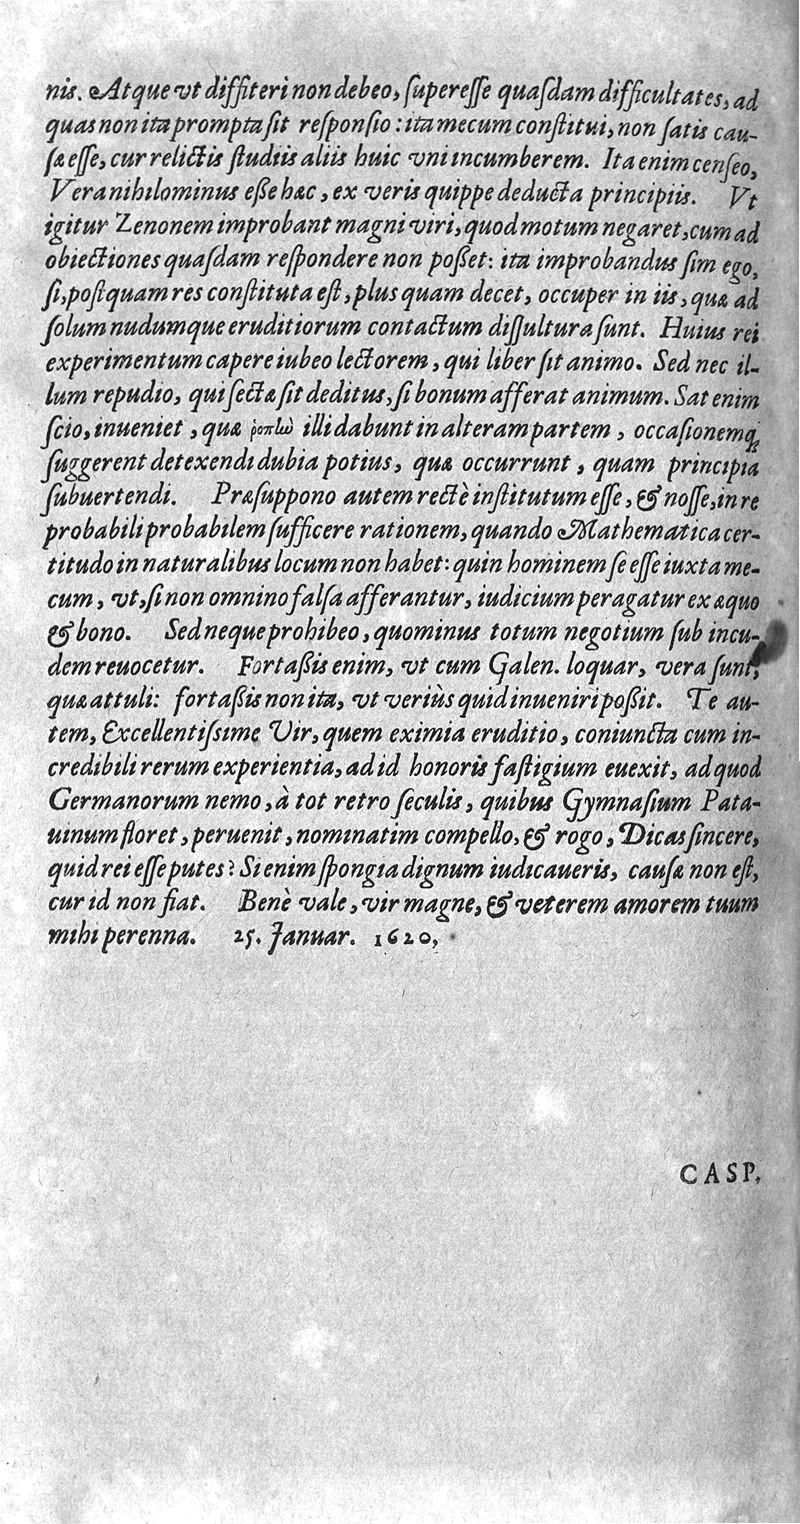 nis. Atque vt diffiteri non debeo, ſupereſſe quaſdam difficultates, ad
quas non ita prompta ſit reſponſio: ita mecum conſtitui, non ſatis cau-
ſæ eſſe, cur relictis ſtudiis aliis huic vni incumberem. Ita enim cenſeo,
Vera nihilominus eße hæc, ex veris quippe deducta principiis. Vt
igitur Zenonem improbant magni viri, quod motum negaret, cum ad
obiectiones quaſdam reſpondere non poßet: ita improbandus ſim ego,
ſi, poſtquam res conſtituta eſt, plus quam decet, occuper in iis, quæ ad
ſolum nudumque eruditiorum contactum diſſultura ſunt. Huius rei
experimentum capere iubeo lectorem, qui liber ſit animo. Sed nec il-
lum repudio, qui ſectæ ſit deditus, ſi bonum afferat animum. Sat enim
ſcio, inueniet, quæ ῥοπὴν illi dabunt in alteram partem, occaſionemq́;
ſuggerent detexendi dubia potius, quæ occurrunt, quam principia
ſubuertendi. Præſuppono autem rectè inſtitutum eſſe, & noſſe, in re
probabili probabilem ſufficere rationem, quando Mathematica cer-
titudo in naturalibus locum non habet: quin hominem ſe eſſe iuxta me-
cum, vt, ſi non omnino falſa afferantur, iudicium peragatur ex æquo
& bono. Sed neque prohibeo, quominus totum negotium ſub incu-
dem reuocetur. Fortaßis enim, vt cum Galen. loquar, vera ſunt,
quæ attuli: fortaßis non ita, vt veriùs quid inueniri poßit. Te au-
tem, Excellentiſsime Vir, quem eximia eruditio, coniuncta cum in-
credibili rerum experientia, ad id honoris faſtigium euexit, ad quod
Germanorum nemo, à tot retro ſeculis, quibus Gymnaſium Pata-
uinum floret, peruenit, nominatim compello, & rogo, Dicas ſincere,
quid rei eſſe putes? Si enim ſpongia dignum iudicaueris, cauſæ non eſt,
cur id non fiat. Benè vale, vir magne, & veterem amorem tuum
mihi perenna. 25. Januar. 1620.
CASP.